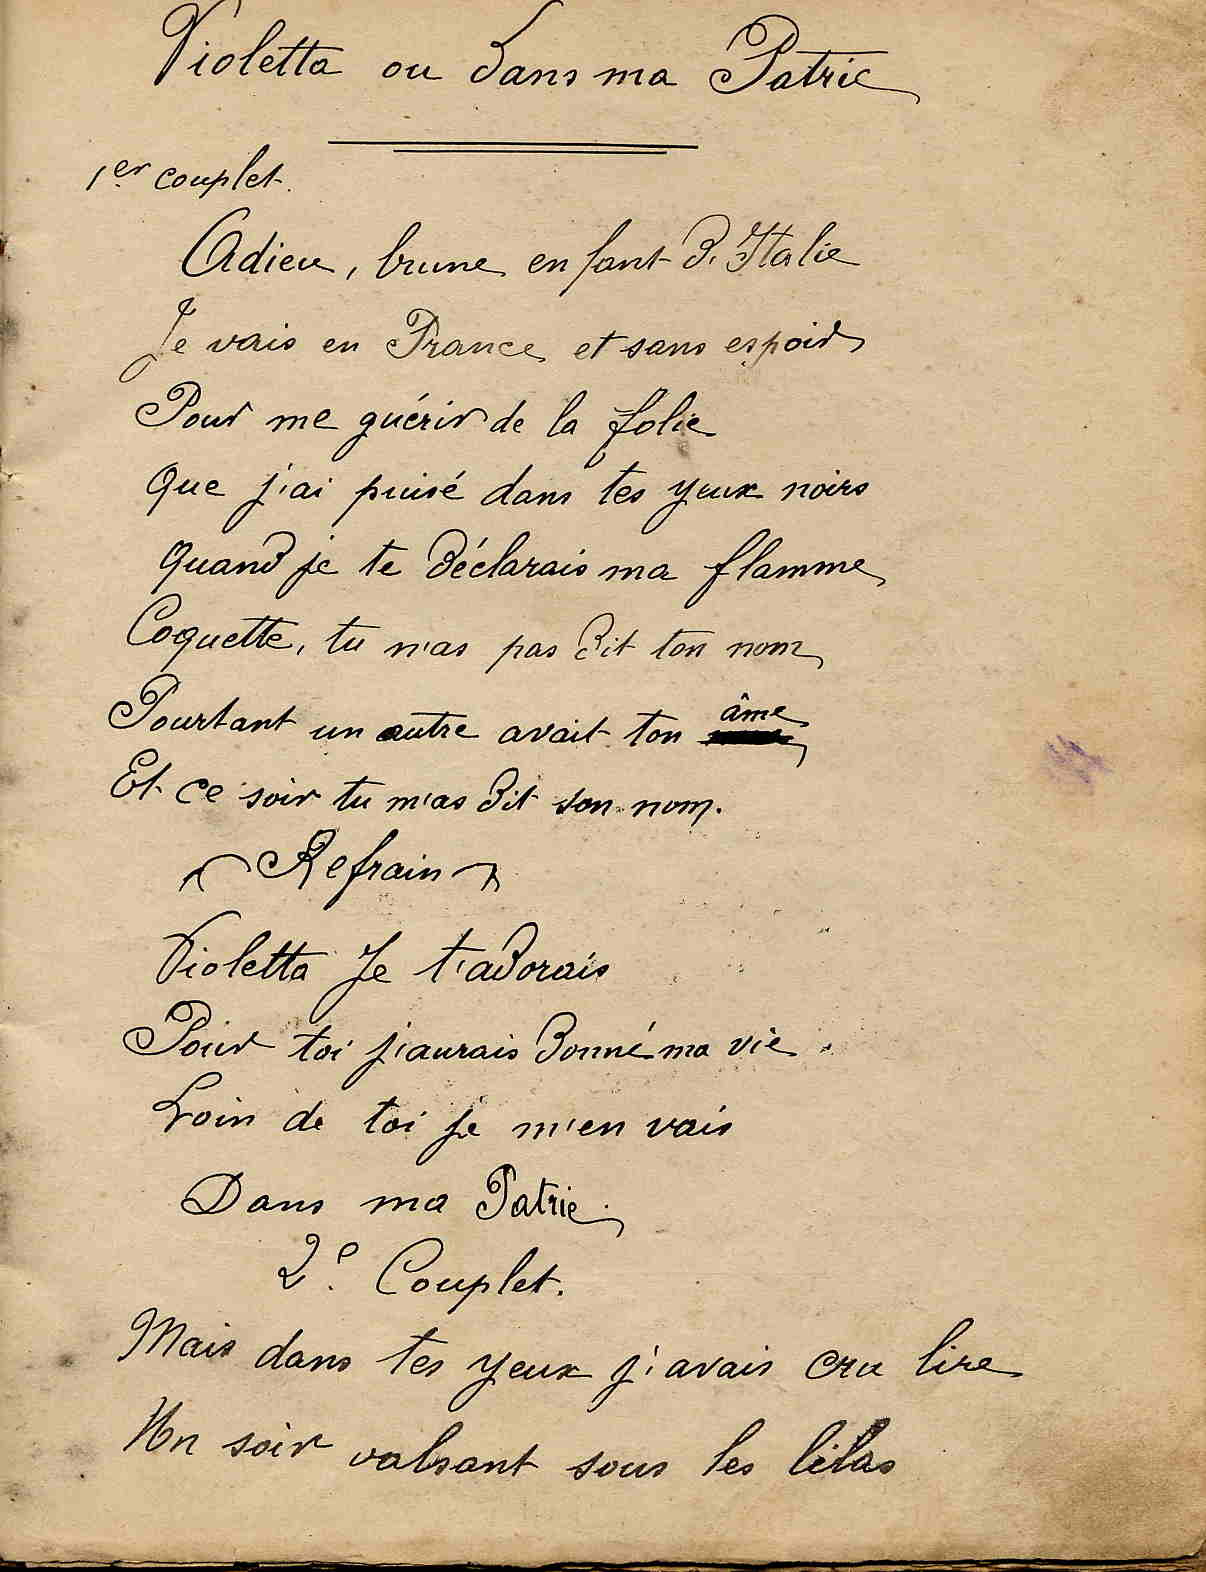 Violetta ou Dans ma Patrie
1er couplet.
Adieu, brune enfant D'Italie
Je vais en France et sans espoir
Pour me guérir de la folie
Que j'ai puisé dans tes yeux noirs
Quand je te Déclarais ma flamme
Coquette, tu m'as pas Dit ton nom
Pourtant un autre avait ton âme
Et ce soir tu m'as Dit son nom.
Refrain
Violetta Je t'aDorais
Pour toi j'aurais Donné ma vie.
Loin de toi je m'en vais
Dans ma Patrie.
2e. Couplet.
Mais dans tes yeux j'avais cru lire
Un soir valsant sous les lilas